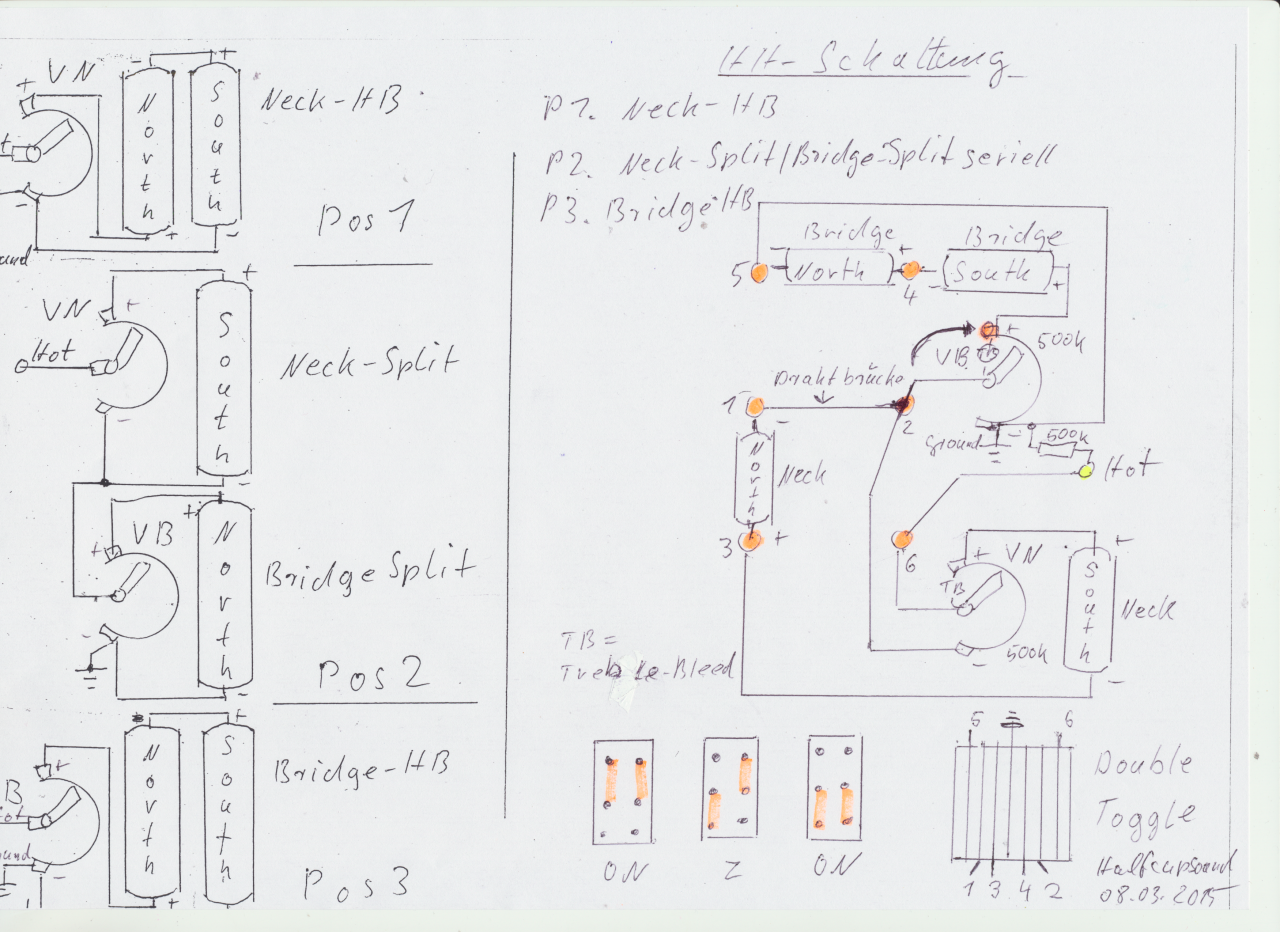 VN
+
-
+
North
South
Neck-HB
-
+
-
Pos 1
+
VN
+
Hot
South
Neck-Split
-
-
+
VB
+
North
Bridge Split
-
-
Pos 2
+
North
South
Bridge-HB
+
B
-
+
-
Pos 3
HH-Schaltung
P1. Neck-HB
P2. Neck-Split/Bridge-Split seriell
P3. Bridge-HB
Bridge
Bridge
5
-
North
+
4
-
South
+
+
500k
VB
TB
Drahtbrücke
1
-
2
Ground
-
500k
Hot
North
Neck
3
+
6
+
VN
+
TB
South
Neck
-
500k
-
TB =
Treble-Bleed
ON
Z
ON
5
6
Double
Toggle
1 3 4 2
Halfcupsound
08.03.2015